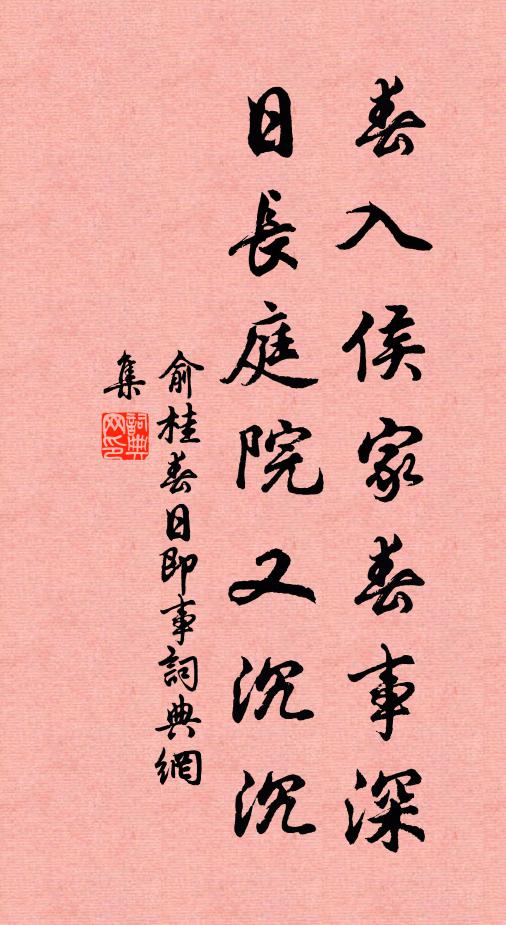 春入侯家春事深
日長庭院又沉沉
俞桂春日即事詞典網
集
詞典網印